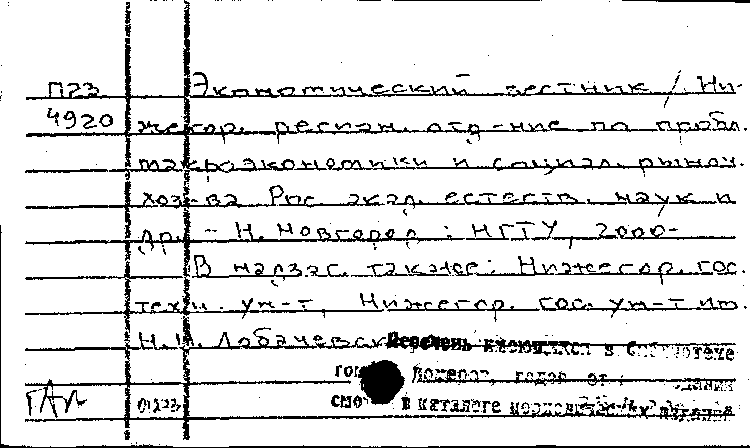 П23 Экономический вестник / Ни-
4920 жегор. регион. отд-ние по пробл.
макроэкономики и социал. рыноч.
хоз-ва Рос. акад. естеств. наук и
др. - Н. Новгород : НГТУ, 2000-
В надзаг. также: Нижегор. гос.
техн. ун-т, Нижегор. гос. ун-т им.
Н.И. Лобачевск
Перечень имеющихся в библиотеке
номеров, годов
в каталоге